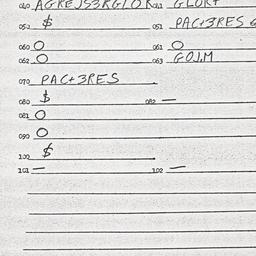 040 AGREJS3RGIOK 041 GLORT
050 $ 051 PACT3RES G
060 O 061 O
062 O 063 GOJ.M
070 PACT3RES
080 $ 082 —
081 O
090 O
100 $
101 — 102 —